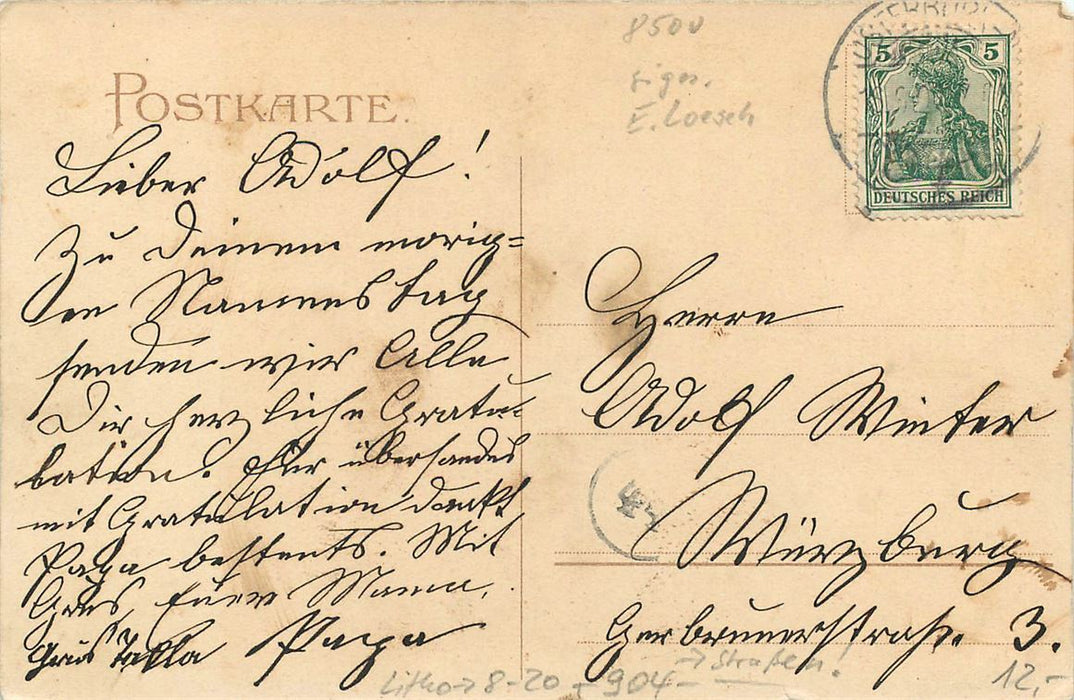 POSTKARTE.
8500
sign.
E. Loesch
DEUTSCHES REICH
5 5
Lieber Adolf!
Zu Deinem morig=
en Namenstag
senden wir Alle
Dir herzliche Gratu=
lation. Für übersandes
mit Gratulation dankt
Papa bestents. Mit
Grus, Euer Mama,
Papa
Grus
Herrn
Adolf Winter
Würzburg
Gerbrunerstraße. 3.
Litho → 8-20 - 904 - → Straßen!
12.-